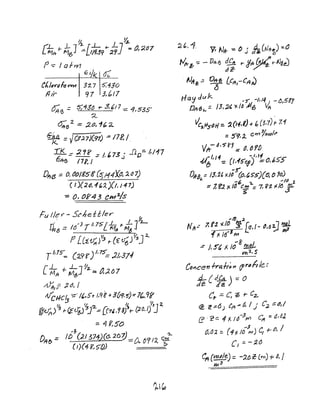 [1/M_A + 1/M_B]^1/2 = [1/119.39 + 1/29]^1/2 = 0.207
P = 1 atm
ε/k | σ
Chloroform 327 5.430
Air 97 3.617
σ_AB = 5.430 + 3.617 / 2 = 4.535
σ_AB² = 20.462
ε_AB/K = √(327)(97) = 178.1
TK/ε_AB = 298/178.1 = 1.673 ; Ω_D = 1.147
D_AB = 0.001858 (5144)(0.207) / (1)(20.462)(1.147)
= 0.0843 cm²/s
Fuller - Schettler
D_AB = 10⁻³ T^1.75 [1/M_A + 1/M_B]^1/2 / P[(Σv_A)^1/3 + (Σv_B)^1/3]²
T^1.75 = (298)^1.75 = 21374
[1/M_A + 1/M_B]^1/2 = 0.207
= 20.1
CHCl₃ = 16.5 + 1.98 + 3(19.5) = 76.98
[(Σv_A)^1/3 + (Σv_B)^1/3]² = [(76.98)^1/3 + (20.1)^1/3]²
= 48.50
D_AB = 10⁻³ (21374)(0.207) / (1)(48.50) = 0.0912 cm²/s
26.9 ∇·N_A = 0 ; d/dz (N_A,z) = 0
N_A,z = - D_AB dC_A/dz + y_A (N_A,z + N_B,z)
N_A,z = D_AB/δ (C_A1 - C_A2)
Hayduk
= 2(14.8) + 6(3.7) + 7.4
= 59.2 cm³/mole
V_A^-0.589 = 0.090
= 0.655
= 7.82 x 10⁻⁶ cm²/s = 7.82 x 10⁻¹⁰ m²/s
N_A = 7.82 x 10⁻¹⁰ m²/s / 4 x 10⁻³ m [0.1 - 0.02] mol/m³
= 1.56 x 10⁻⁸ mol/m²·s
Concentration profile:
d/dz (dC_A/dz) = 0
C_A = C₁ z + C₂
@ z = 0 ; C_A = 0.1 ; C₂ = 0.1
@ z = 4 x 10⁻³ m C_A = 0.02
0.02 = (4 x 10⁻³ m) C₁ + 0.1
C₁ = -20
C_A (mole/m³) = -20 z (m) + 0.1